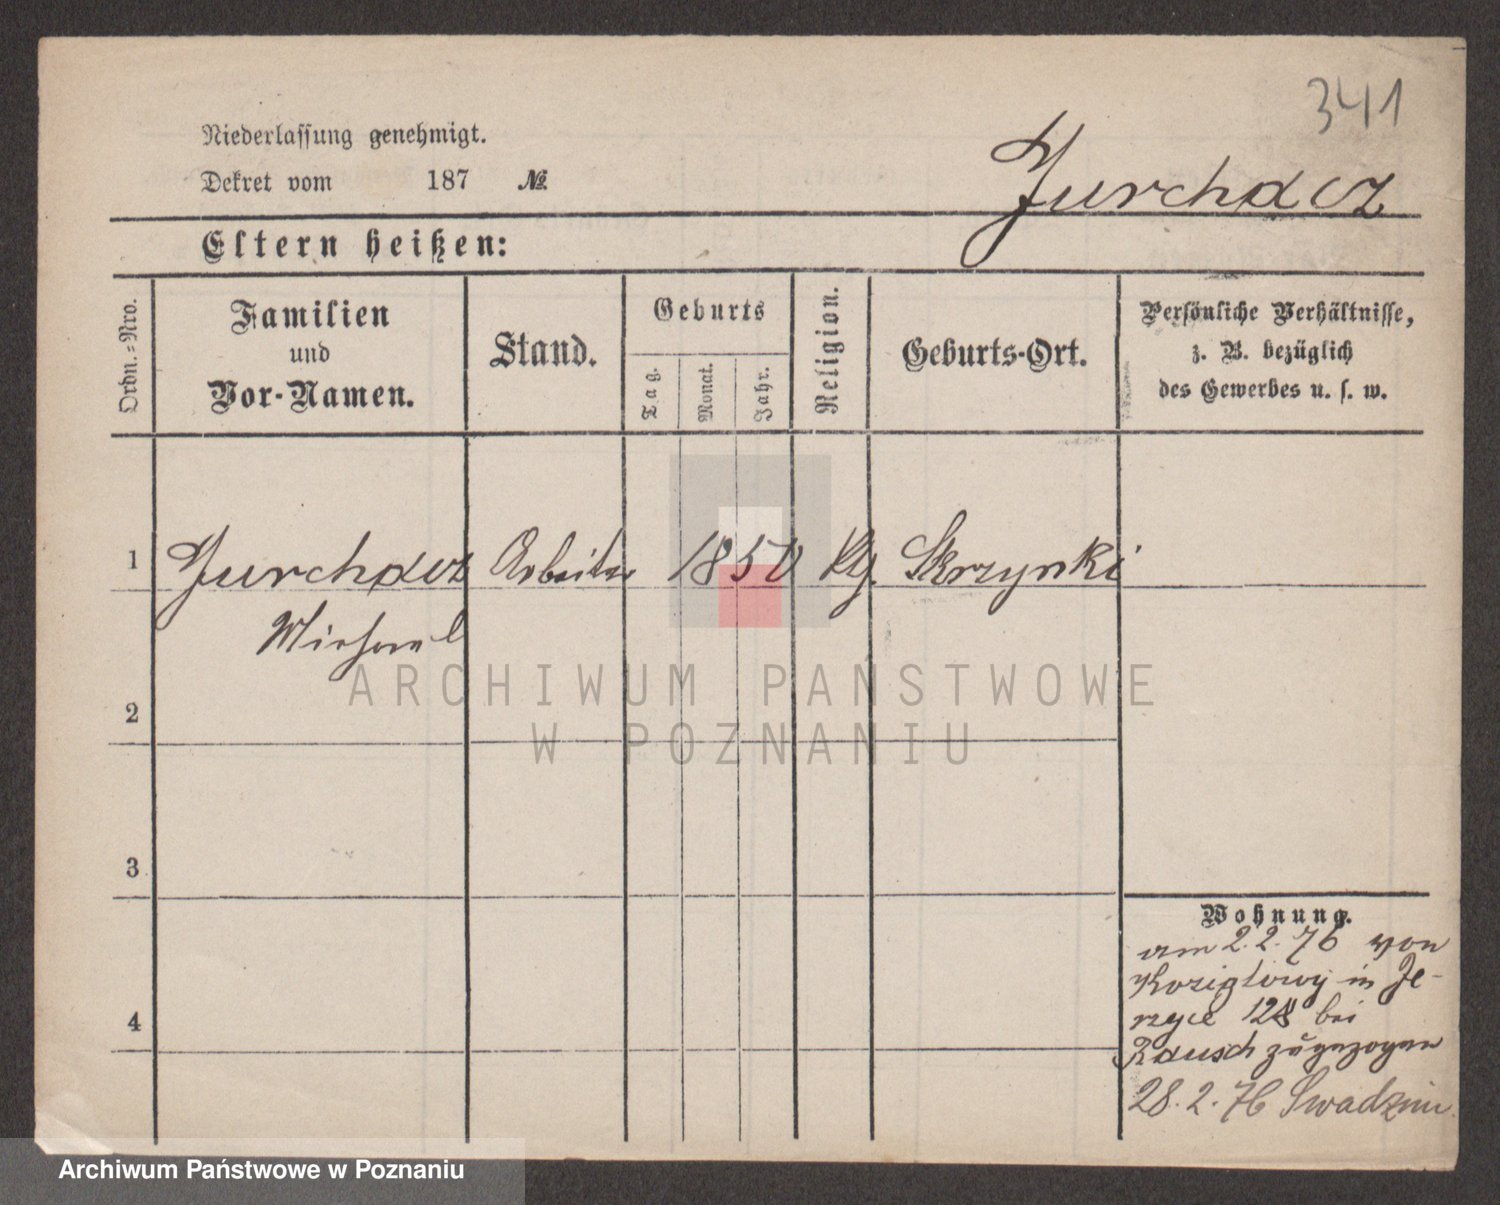 341
Niederlassung genehmigt.
Dekret vom 187 №
Jurchdcz
Eltern heißen:
Ordn.-Nro.
Familien
und
Vor-Namen.
Stand.
Geburts
Tag.
Monat.
Jahr.
Religion.
Geburts-Ort.
Persönliche Verhältnisse,
z. B. bezüglich
des Gewerbes u. s. w.
1 Jurchdcz Arbeiter 1850 Skrzynki
Michael
2
3
4
Wohnung.
am 2.2.76 von
Koziglowy in Je-
rzyce 128 bei
Rausch zugezogen
28.2.76 Swadzim
ARCHIWUM PAŃSTWOWE
W POZNANIU
Archiwum Państwowe w Poznaniu